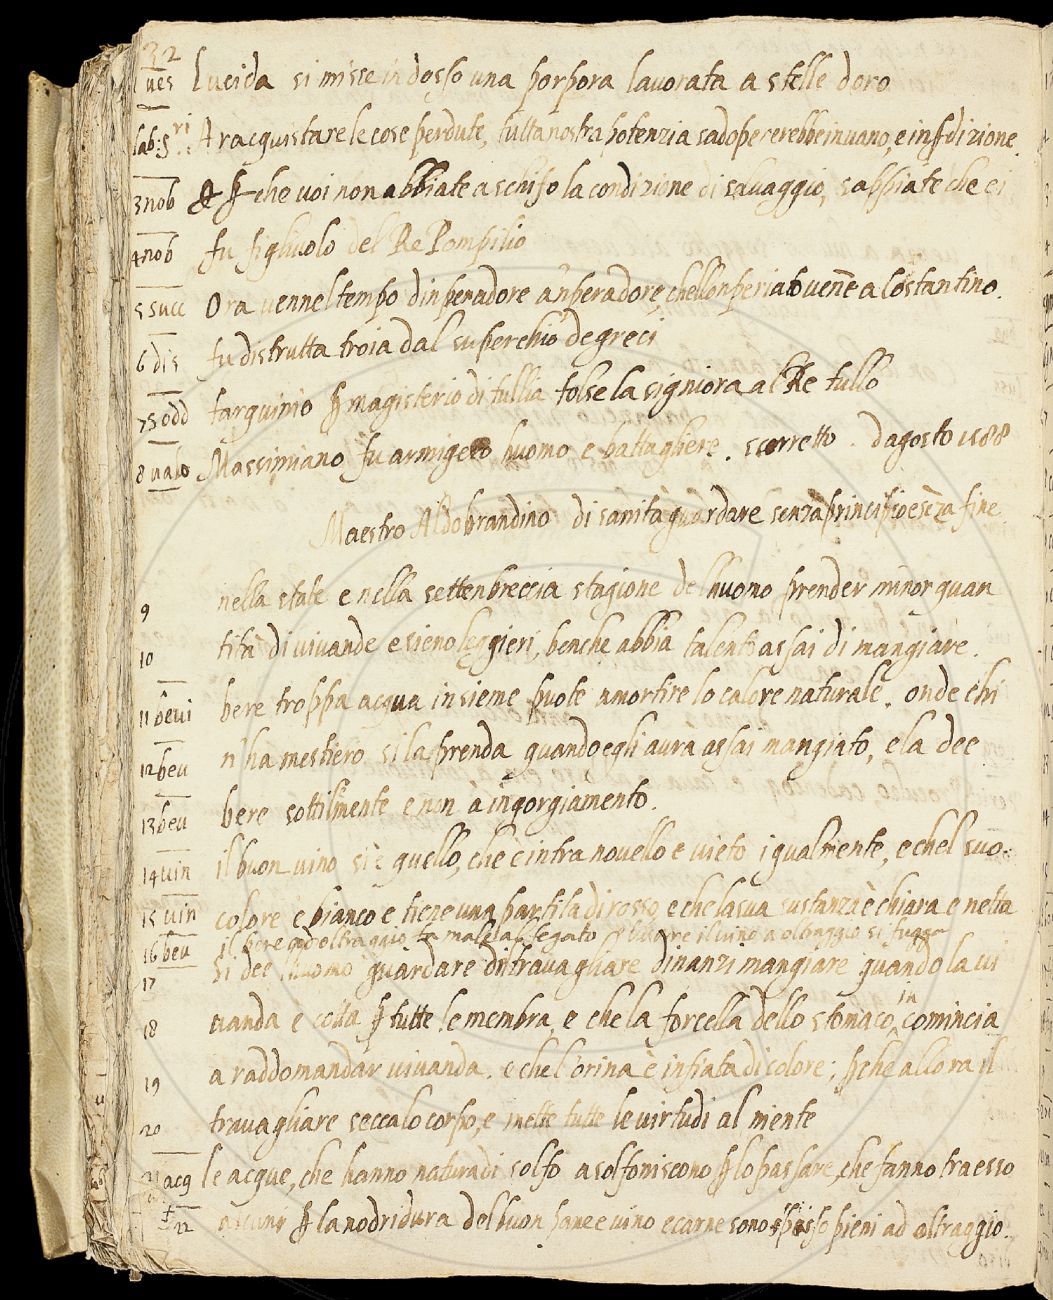 32
ves Lucida si misse in dosso una porpora lavorata a stelle doro
lab: Aracquistare le cose perdute, tutta nostra potenzia sadopererebbe in vano, e
3 nob che voi non abbiate a schifo la condizione di savaggio, sappiate che ei
4 nob fu figlivolo del Re Pompilio
5 succ Ora vennel tempo dinperadore anperadore, chellonperiato venne a Costantino.
6 dis fu distrutta troia dal superchio de greci
7 Sodd tarquinio ꝑ magisterio di tullia tolse la signiora al Re tullo
8 valo Massimiano fu armigero huomo e battagliere. scorretto. dagosto 1588
Maestro Aldobrandino di sanità guardare senza principio e sēza fine
9 nella state e nella settenbreccia stagione del huomo prender minor quan
10 tità di vivande e sieno leggieri, benche abbia talento assai di mangiare.
11 bevi bere troppa acqua insieme puote amortire lo calore naturale. onde chi
12 beu n'ha mestiero si la prenda quando egli aura assai mangiato, e la dee
13 beu bere sottilmente e non a ingorgiamento.
14 vin il buon vino si è quello, che è intra novello e vieto igualmente, e chel suo
15 vin colore è bianco e tiene una partita di rosso, e che la sua sustanza è chiara e netta
16 beu il bere ad oltraggio fa male al fegato il vino a oltraggio si fugga
17 si dee l huomo guardare di travagliare dinanzi mangiare quando la vi
18 vanda è cotta ꝑ tutte le membra, e che la forcella dello stomaco in comincia
19 a raddomandar vivanda. e che l'orina è infiata di colore; ꝑche allora il
20 travagliare secca lo corpo, e mette tutte le virtudi al niente
21 acq le acque, che hanno natura di solfo asolfoniscono ꝑ lo passare, che fanno tra esso
22 alcuni ꝑ la nodridura del buon pane e vino e carne sono spesso pieni ad oltraggio.